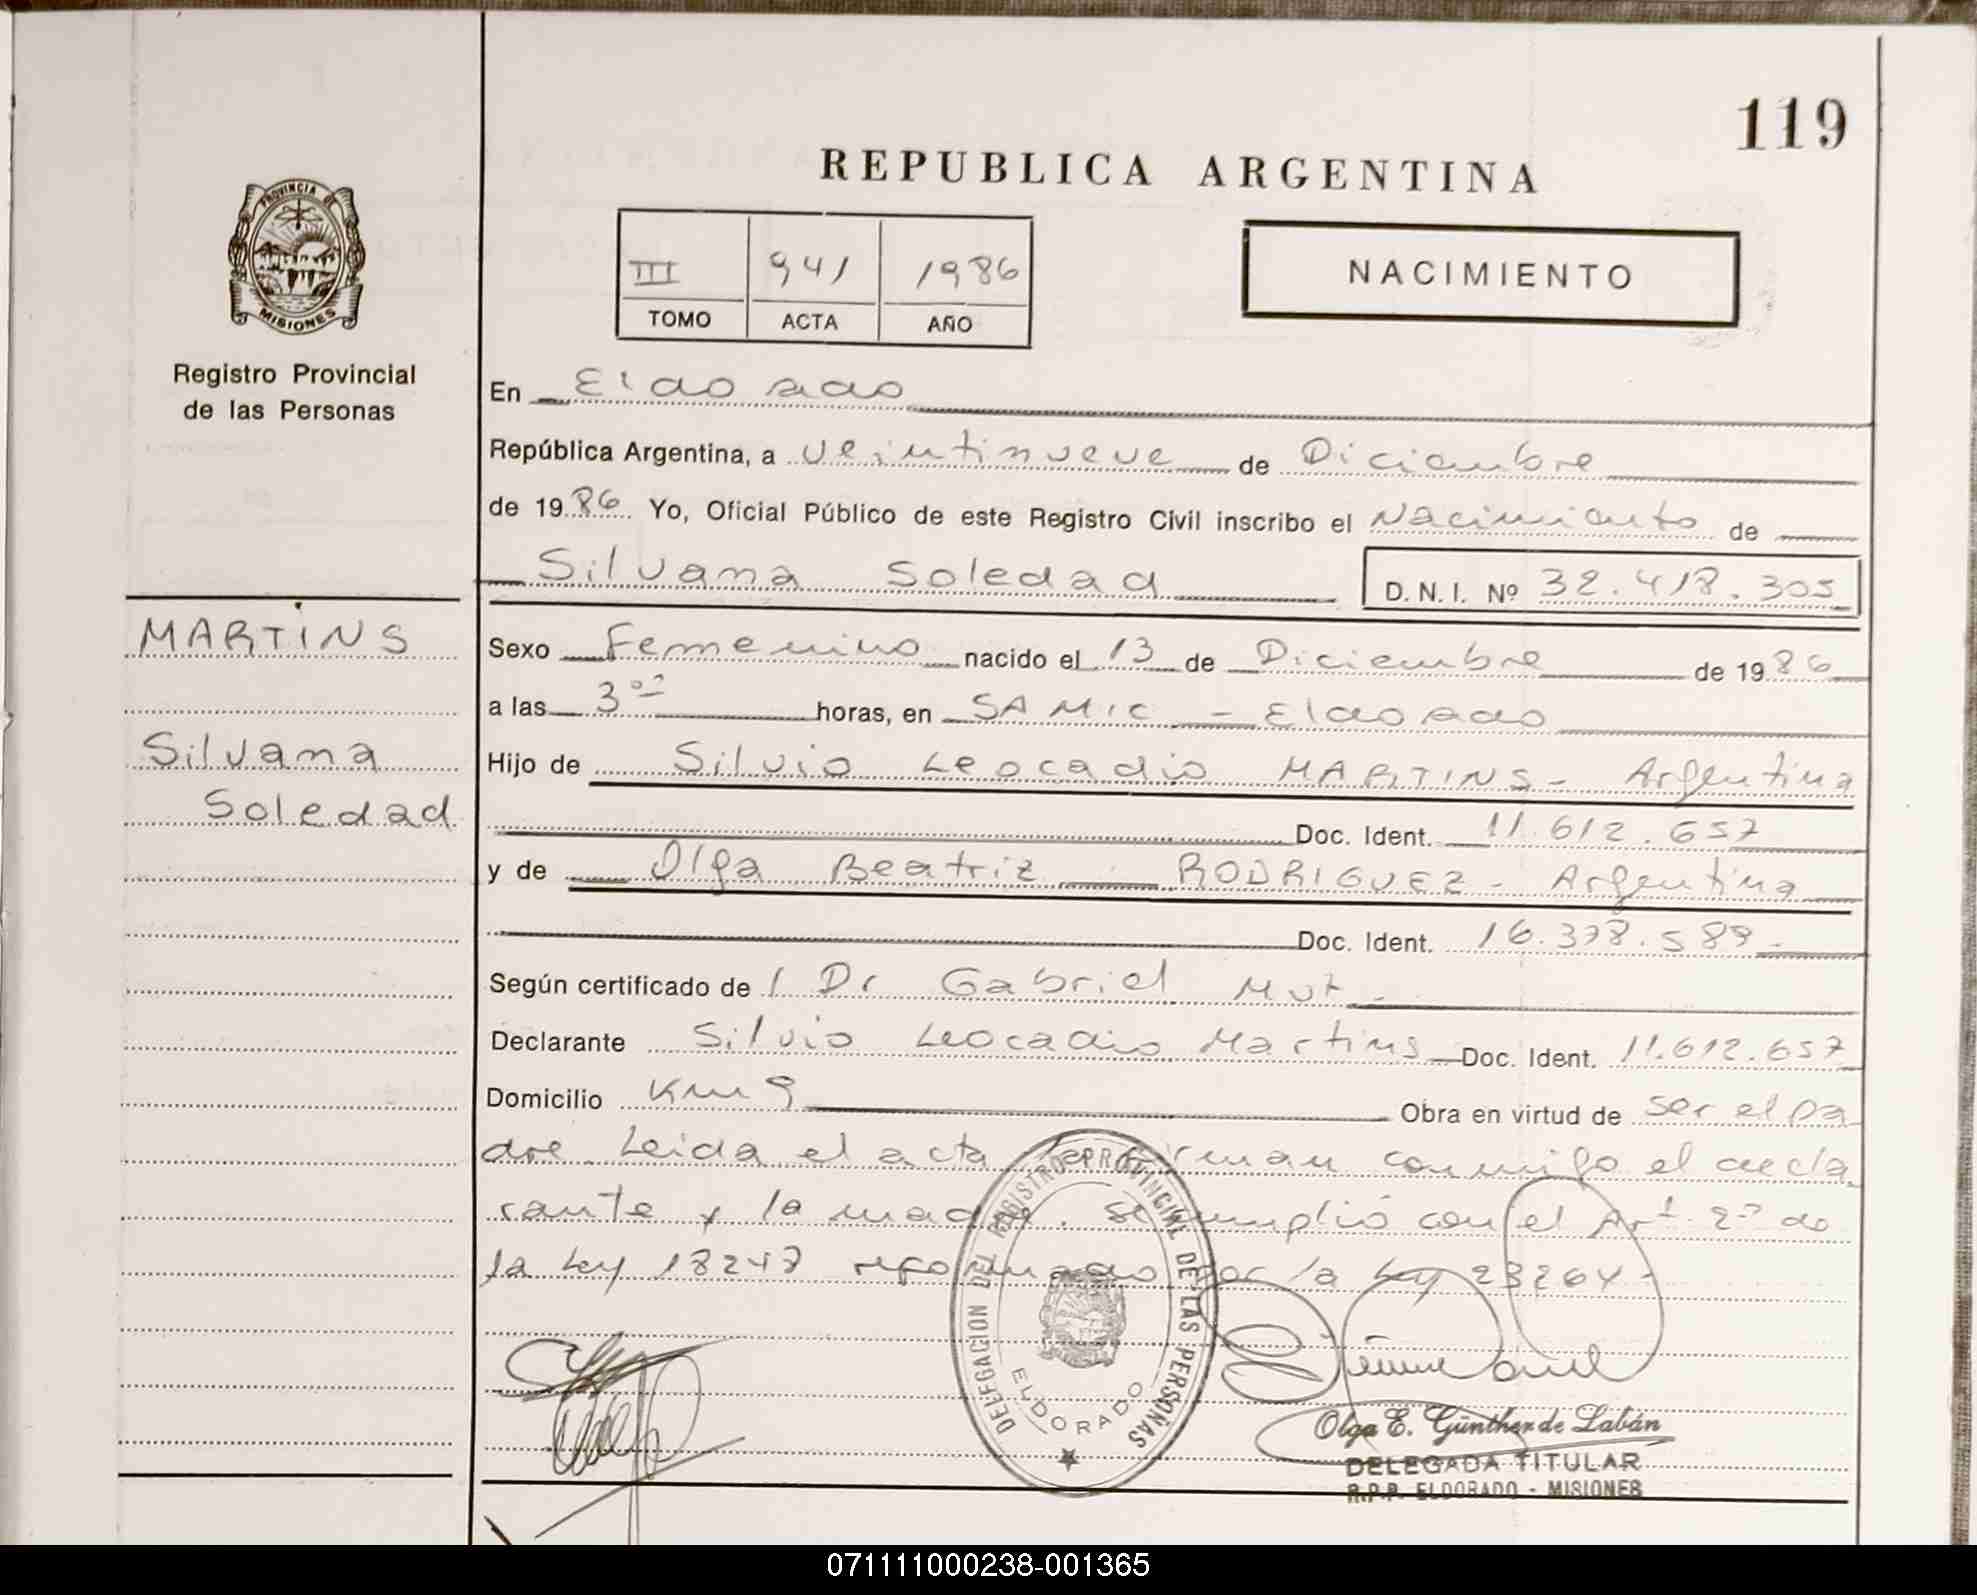 119
REPUBLICA ARGENTINA
PROVINCIA DE
MISIONES
Registro Provincial
de las Personas
III 941 1986
TOMO ACTA AÑO
NACIMIENTO
En Eldorado
República Argentina, a veintinueve de Diciembre
de 1986 Yo, Oficial Público de este Registro Civil inscribo el Nacimiento de
Silvana Soledad D. N. I. Nº 32.418.305
MARTINS
Silvana
Soledad
Sexo Femenino nacido el 13 de Diciembre de 1986
a las 3⁰⁰ horas, en SAMIC - Eldorado
Hijo de Silvio Leocadio MARTINS - Argentina
Doc. Ident. 11.612.657
y de Olga Beatriz RODRIGUEZ - Argentina
Doc. Ident. 16.378.589 -
Según certificado de / Dr Gabriel
Declarante Silvio Leocadio Martins Doc. Ident. 11.612.657
Domicilio Km 9 Obra en virtud de ser el pa
dre. Leida el acta la firman conmigo el decla
rante y la madre. Se cumplió con el Art. 2º de
la Ley 18248 reformado por la Ley 23264 -
DELEGACION DEL REGISTRO PROVINCIAL DE LAS PERSONAS
ELDORADO
Olga E. Günther de Labán
DELEGADA TITULAR
R.P.P. ELDORADO - MISIONES
071111000238-001365